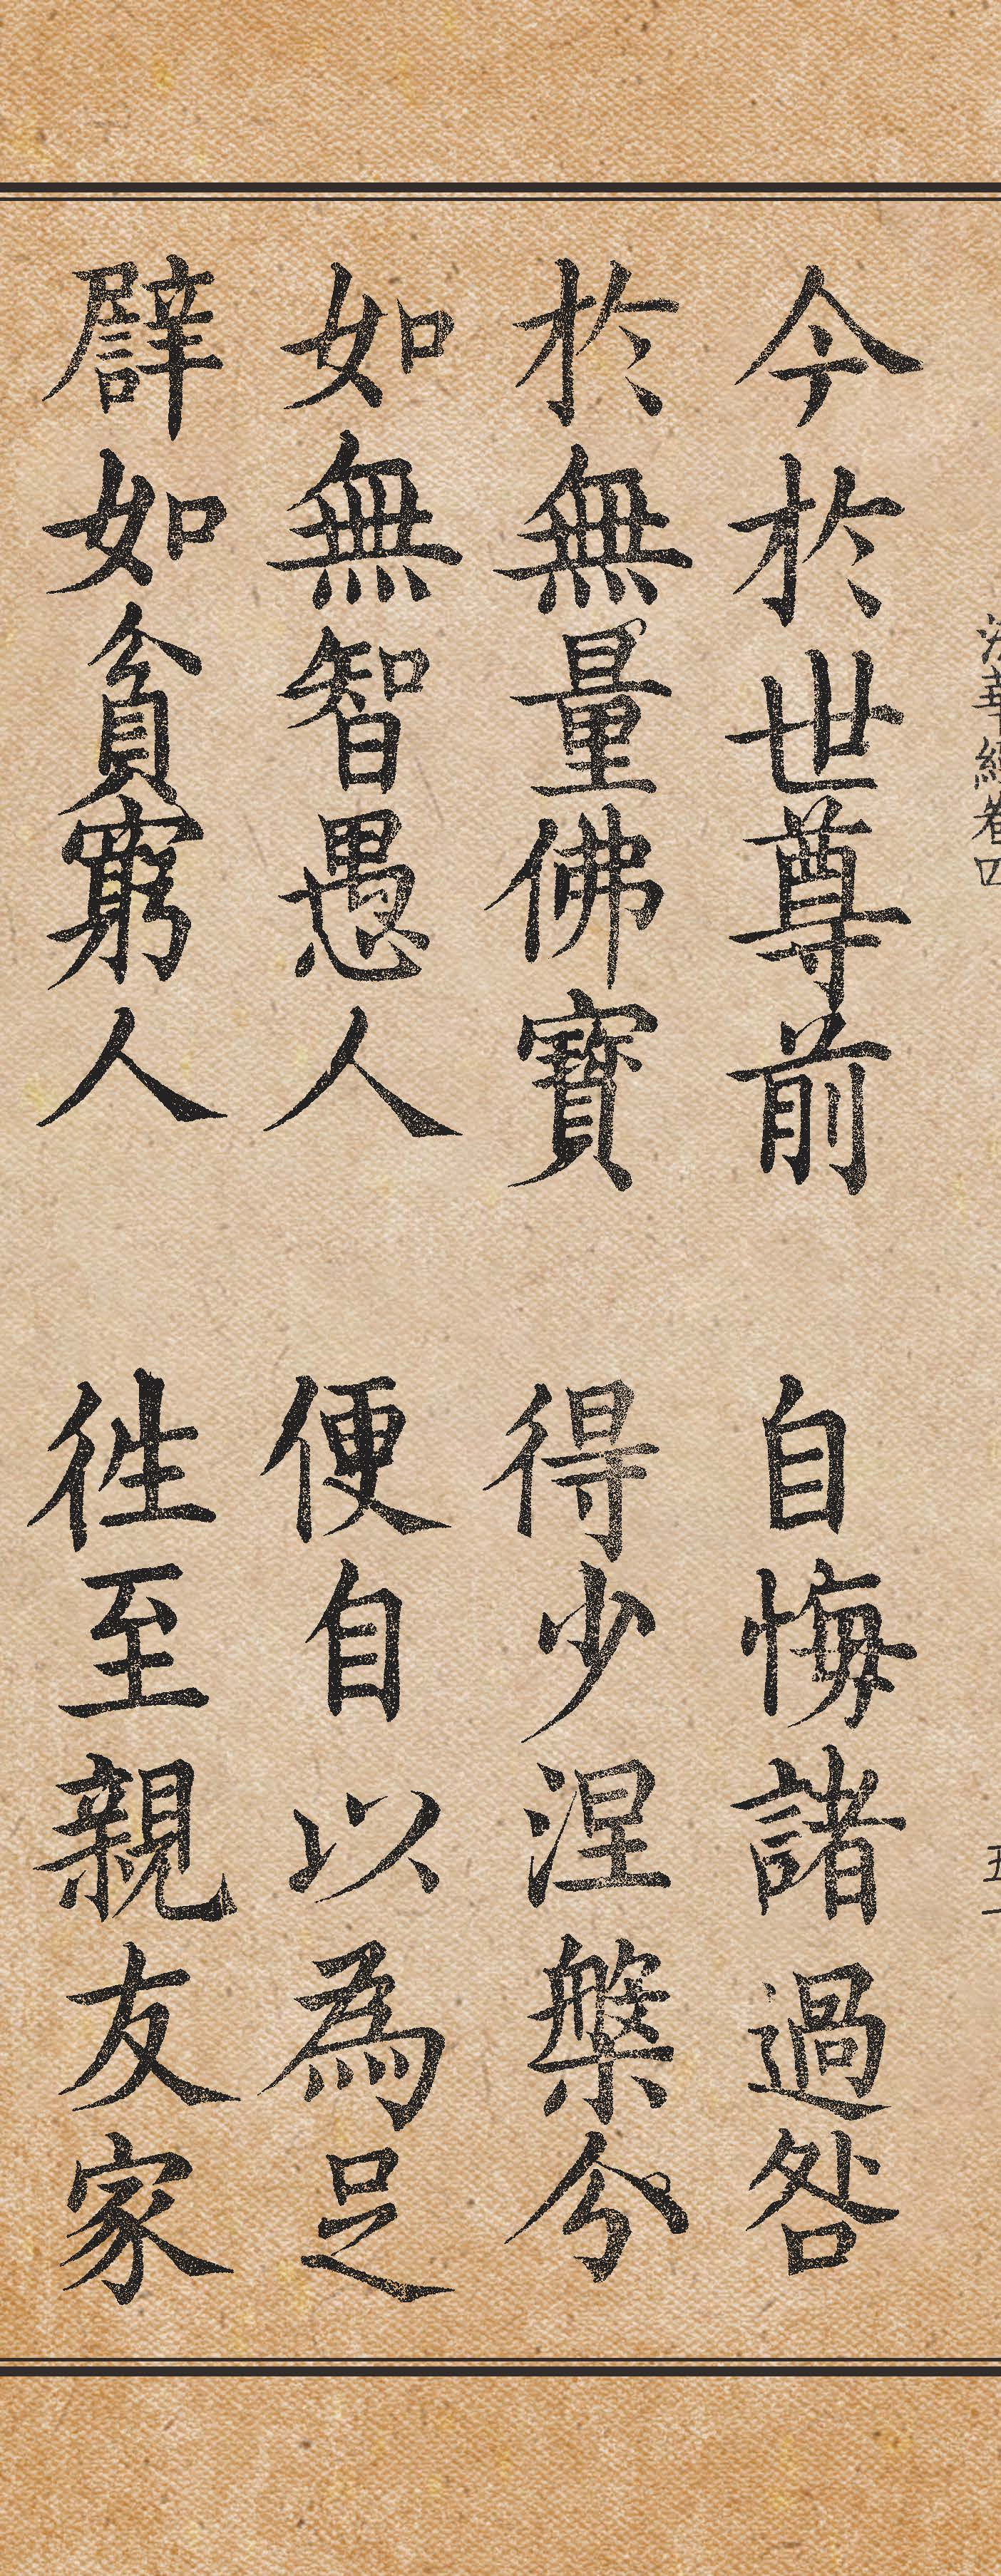 法華經卷四
今於世尊前　自悔諸過咎
於無量佛寶　得少涅槃分
如無智愚人　便自以為足
譬如貧窮人　徃至親友家